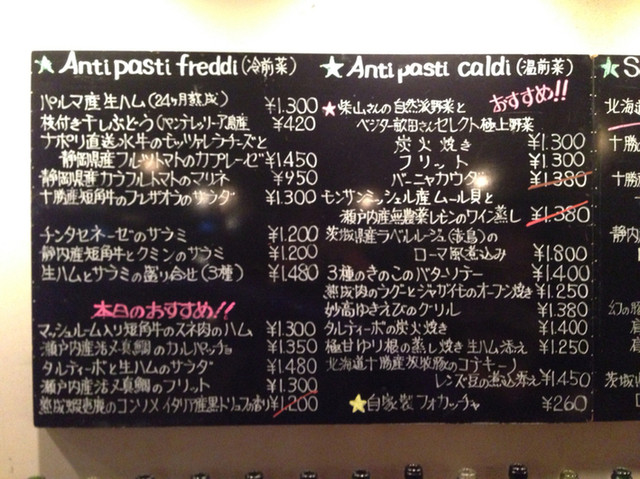 ★ Antipasti freddi (冷前菜)
パルマ産生ハム (24ヶ月熟成) ¥1.300
枝付き干しぶどう (パンテレッリーア島産 ¥420
ナポリ直送水牛のモッツァレラチーズと
静岡県産フルーツトマトのカプレーゼ ¥1.450
静岡県産カラフルトマトのマリネ ¥950
十勝産短角牛のブレザオラのサラダ ¥1.300
チンタセネーゼのサラミ ¥1.200
静内産短角牛とクミンのサラミ ¥1.200
生ハムとサラミの盛り合せ (3種) ¥1.480
本日のおすすめ!!
マッシュルーム入り短角牛のスネ肉のハム ¥1.300
瀬戸内産活〆真鯛のカルパッチョ ¥1.350
タルティーボと生ハムのサラダ ¥1.480
瀬戸内産活〆真鯛のフリット ¥1.300
熟成蝦夷鹿のコンソメ イタリア産黒トリュフの香り ¥1.200
★ Antipasti caldi (温前菜)
おすすめ!!
★柴山さんの自然派野菜と
ベジター歌田さんセレクト極上野菜
炭火焼き ¥1.300
フリット ¥1.300
バーニャカウダ ¥1.380
モンサンミッシェル産ムール貝と
瀬戸内産無農薬レモンのワイン蒸し ¥1.380
茨城県産ラベルルージュ()の
ローマ風煮込み ¥1.800
3種のきのこのバターソテー ¥1.400
熟成肉のラグーとジャガイモのオーブン焼き ¥1.250
妙高ゆきえびのグリル ¥1.380
タルティーボの炭火焼き ¥1.400
極甘ゆり根の蒸し焼き生ハム添え ¥1.250
北海道十勝産放牧豚のコテキーノ
レンズ豆の煮込添え ¥1.450
★自家製フォカッチャ ¥260
★ S
北海道
十勝
十勝
静内
幻の
茨城県